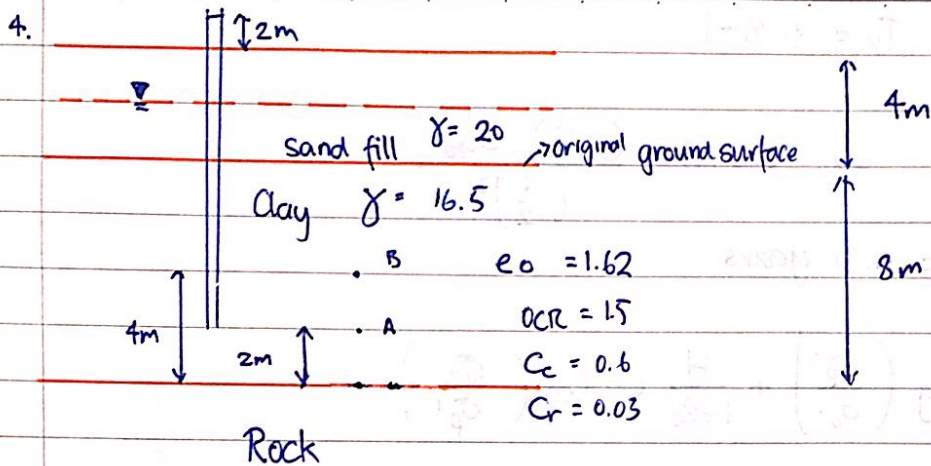 4.
2m
4m
sand fill γ = 20
→original ground surface
Clay γ = 16.5
8m
B
e0 = 1.62
4m
A
OCR = 1.5
2m
Cc = 0.6
Cr = 0.03
Rock